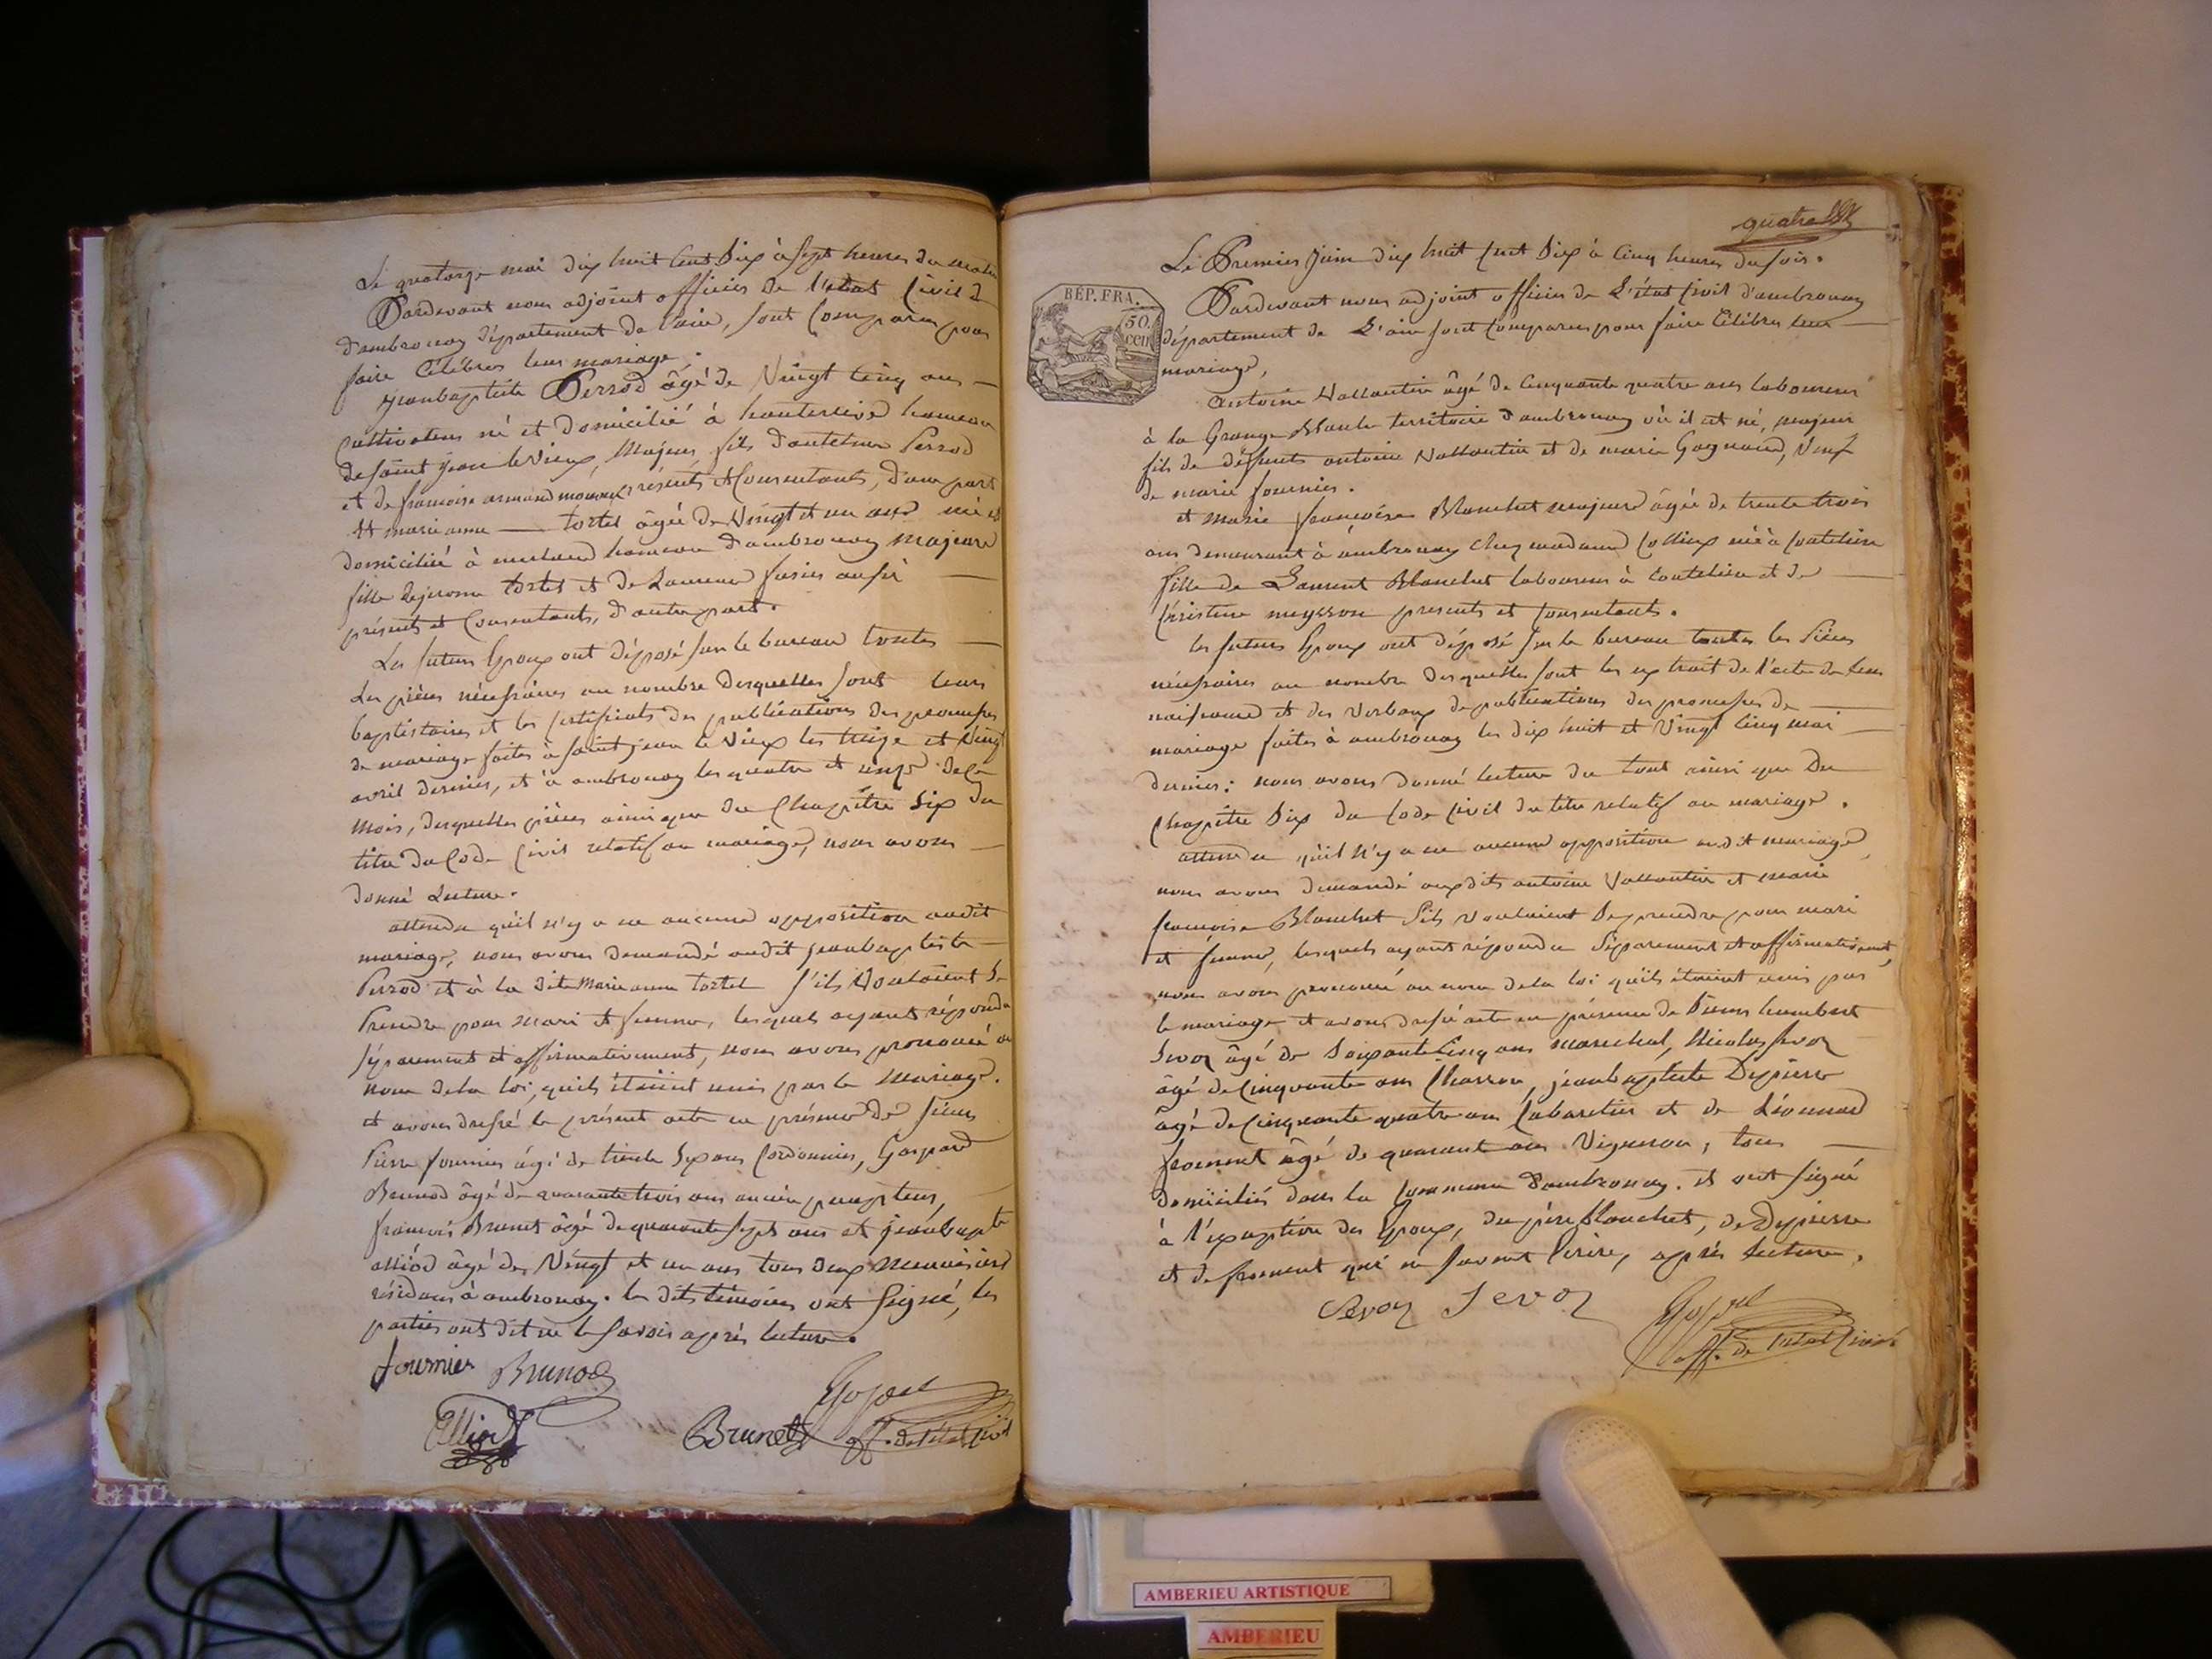 Le quatorze mai dix huit cent Dix à Sept heures du matin
Pardevant nous adjoint officier de l'état Civil d
d'ambronay département de l'ain, sont Comparus pour
faire Célébrer leur mariage.
jeanbaptiste Perrod âgé de Vingt Cinq ans
Cultivateur né et domicilié à hauterive hameau
de saint jean le vieux, Majeur, fils d'antelme Perrod
et de francoise armand présents et Consentants, d'une part
Et marie anne tortel âgée de Vingt et un ans née et
domiciliée à hameau d'ambronay majeure
fille de jerome tortel et de aussi
présents et Consentants, d'autre part.
Les futurs Epoux ont déposé sur le bureau toutes
Les pièces nécessaires au nombre desquelles sont leurs
baptistaires et les Certificats des publications des promesses
de mariage faites à saint jean le Vieux les treize et Vingt
avril dernier, et à ambronay les quatre et onze de Ce
Mois, desquelles pièces ainsi que du Chapitre Six du
titre du Code Civil relatif au mariage, nous avons
donné Lecture.
attendu qu'il n'y a eu aucune opposition audit
mariage, nous avons demandé audit jeanbaptiste
Perrod et à la dite Marie anne tortel s'ils Voulaient Se
Prendre pour mari et femme, lesquels ayant répondu
séparement et affirmativement, nous avons prononcé au
nom de la loi, qu'ils étaient unis par le Mariage.
et avons dressé le présent acte en présence de sieurs
Pierre fournier âgé de trente Six ans Cordonnier, Gaspard
Brunod âgé de quarante trois ans ancien percepteur,
francois Brunet âgé de quarante sept ans et jeanbapte
alliod âgé de Vingt et un ans tous deux menuisiers
résidans à ambronay. les dits témoins ont Signé, les
parties ont dit ne le savoir après lecture.
fournier Brunod
Alliod Brunet off. de l'état civil
quatre
Le Premier juin dix huit Cent Dix à Cinq heures du soir.
RÉP. FRA.
50.
cen
Pardevant nous adjoint officier de L'état Civil d'ambronay
département de L'ain sont Comparus pour faire Célébrer leur
mariage,
antoine Vallantin âgé de Cinquante quatre ans laboureur
à la Grange territoire d'ambronay où il est né, majeur
fils de deffunts antoine Vallantin et de marie Gagnaud, Veuf
de marie fournier.
et Marie françoise Blanchet majeure âgée de trente trois
ans demeurant à ambronay chez madame Collieux née à
fille de Laurent Blanchet laboureur à et de
Cristine meysson presents et Consentants.
les futurs Epoux ont déposé sur le bureau toutes les Pièces
nécessaires au nombre desquelles sont les extrait de l'acte de leur
naissance et des Verbaux de publications des promesses de
mariage faites à ambronay les dix huit et Vingt Cinq mai
dernier: nous avons donné lecture du tout ainsi que du
Chapitre Six du Code Civil du titre relatif au mariage.
attendu qu'il n'y a eu aucune opposition audit mariage,
nous avons demandé auxdits antoine Vallantin et marie
francoise Blanchet S'ils voulaient Se prendre pour mari
et femme, lesquels ayant répondu Séparement et affirmativement,
nous avons prononcé au nom de la loi qu'ils étaient unis par
le mariage et avons dressé acte en présence de Pierre humbert
Sevoz âgé de Soixante Cinq ans marechal, Nicolas Sevoz
âgé de Cinquante ans Charron, jeanbaptiste Depierre
âgé de Cinquante quatre ans Cabaretier et de Léonnard
froment âgé de quarant ans Vigneron, tous
domiciliés dans la Commune d'ambronay. et ont signé
à l'exception des Epoux, du père blanchet, de Depierre
et de froment qui ne savent Ecrire, après lecture.
Sevoz Sevoz
off. de l'état Civil
AMBERIEU ARTISTIQUE
AMBERIEU